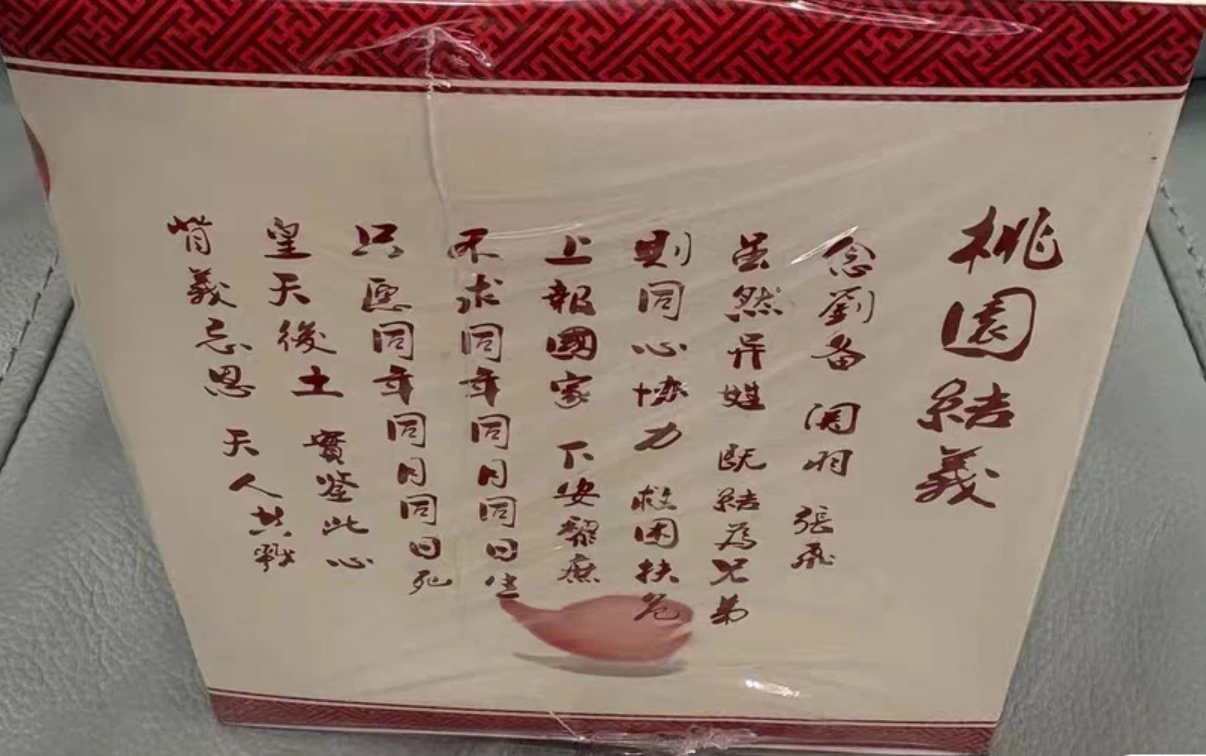 桃園結義
念劉备 関羽 張飛
虽然异姓 既結為兄弟
則同心协力 救困扶危
上報國家 下安黎庶
不求同年同月同日生
只愿同年同月同日死
皇天後土 實鉴此心
背義忘恩 天人共戮